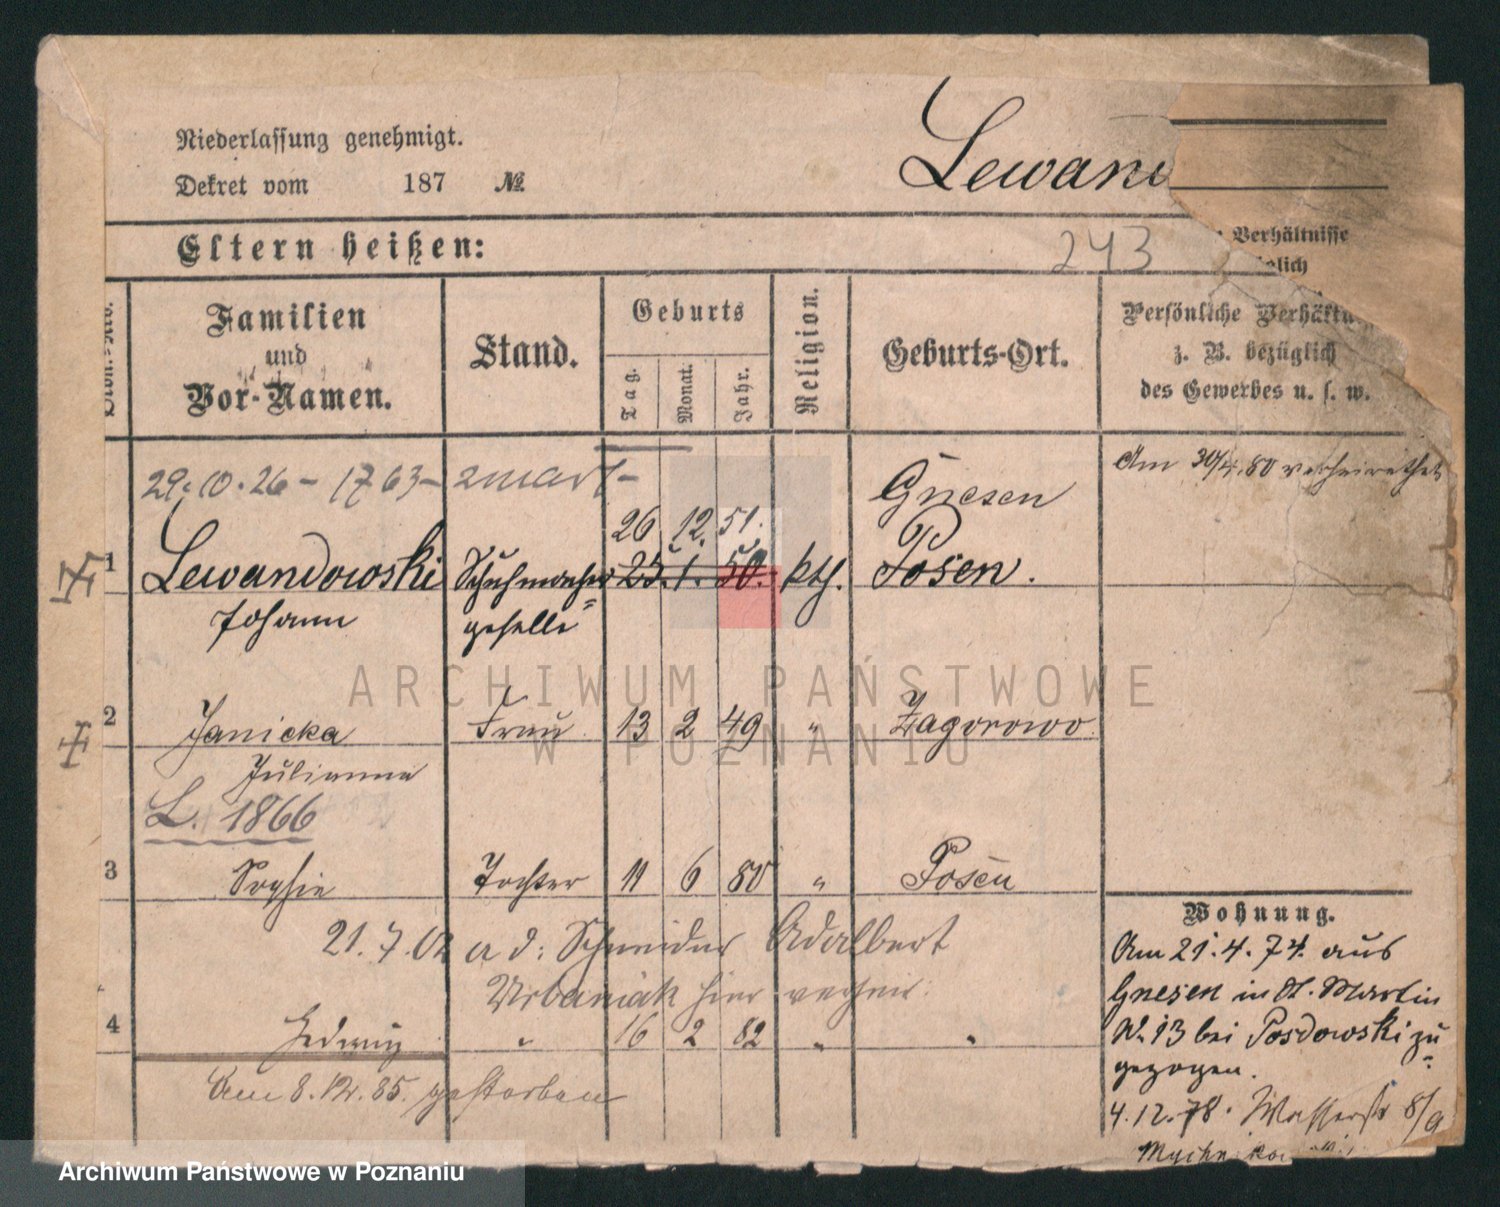 Niederlassung genehmigt.
Dekret vom 187 №
Lewand
Eltern heißen:
243
Verhältnisse
Familien
und
Vor-Namen.
Stand.
Geburts
Tag.
Monat.
Jahr.
Religion.
Geburts-Ort.
Persönliche
z. B. bezüglich
des Gewerbes u. s. w.
29.10.26 - 1763 - zmarł -
Gnesen
Am 30/4.80 verheirathet
26 12. 51.
1 Lewandowski Schuhmacher= 25. 1. 50. kth. Posen.
Johann geselle
2 Janicka Frau 13 2 49 " Zagorowo
Julianna
L. 1866
3 Sophie Tochter 11 6 80 " Posen
21.7.02 a d: Schneider Adalbert
Urbaniak hier verheir.
4 Hedwig " 16 2 82 " "
Am 8.12.85. gestorben
Wohnung.
Am 21.4.74. aus
Gnesen in St. Martin
N. 13 bei Posdowski zu=
gezogen.
4.12.78. Wasserstr 8/9
ARCHIWUM PAŃSTWOWE
W POZNANIU
Archiwum Państwowe w Poznaniu